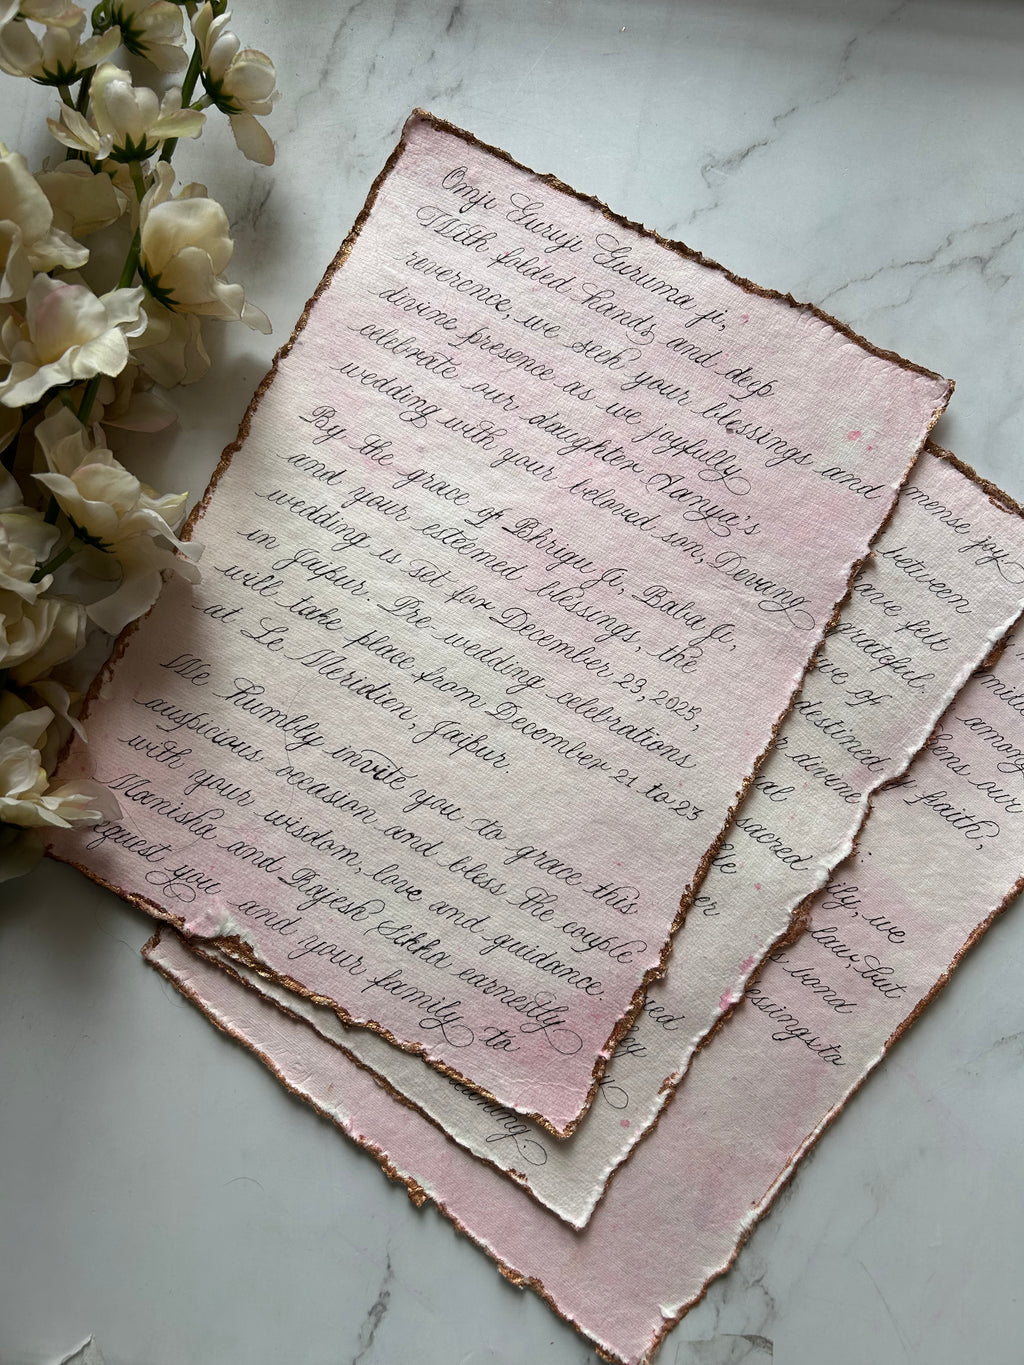 Omji Guruji Guruma ji,
With folded hands and deep
reverence, we seek your blessings and
divine presence as we joyfully
celebrate our daughter Tanya's
wedding with your beloved son, Devang
By the grace of Bhrigu Ji, Baba Ji,
and your esteemed blessings, the
wedding is set for December 23, 2025,
in Jaipur. Pre wedding celebrations
will take place from December 21 to 23
at Le Meridien, Jaipur.
We humbly invite you to grace this
auspicious occasion and bless the couple
with your wisdom, love and guidance.
Manisha and Rajesh Sikka earnestly
equest you and your family to
mense joy
between
ave felt
grateful.
ve of
destined
divine
al
sacred
le
er
sed
ey
y
meaning.
among
ens our
faith,
ily, we
law, but
s bond
essings to